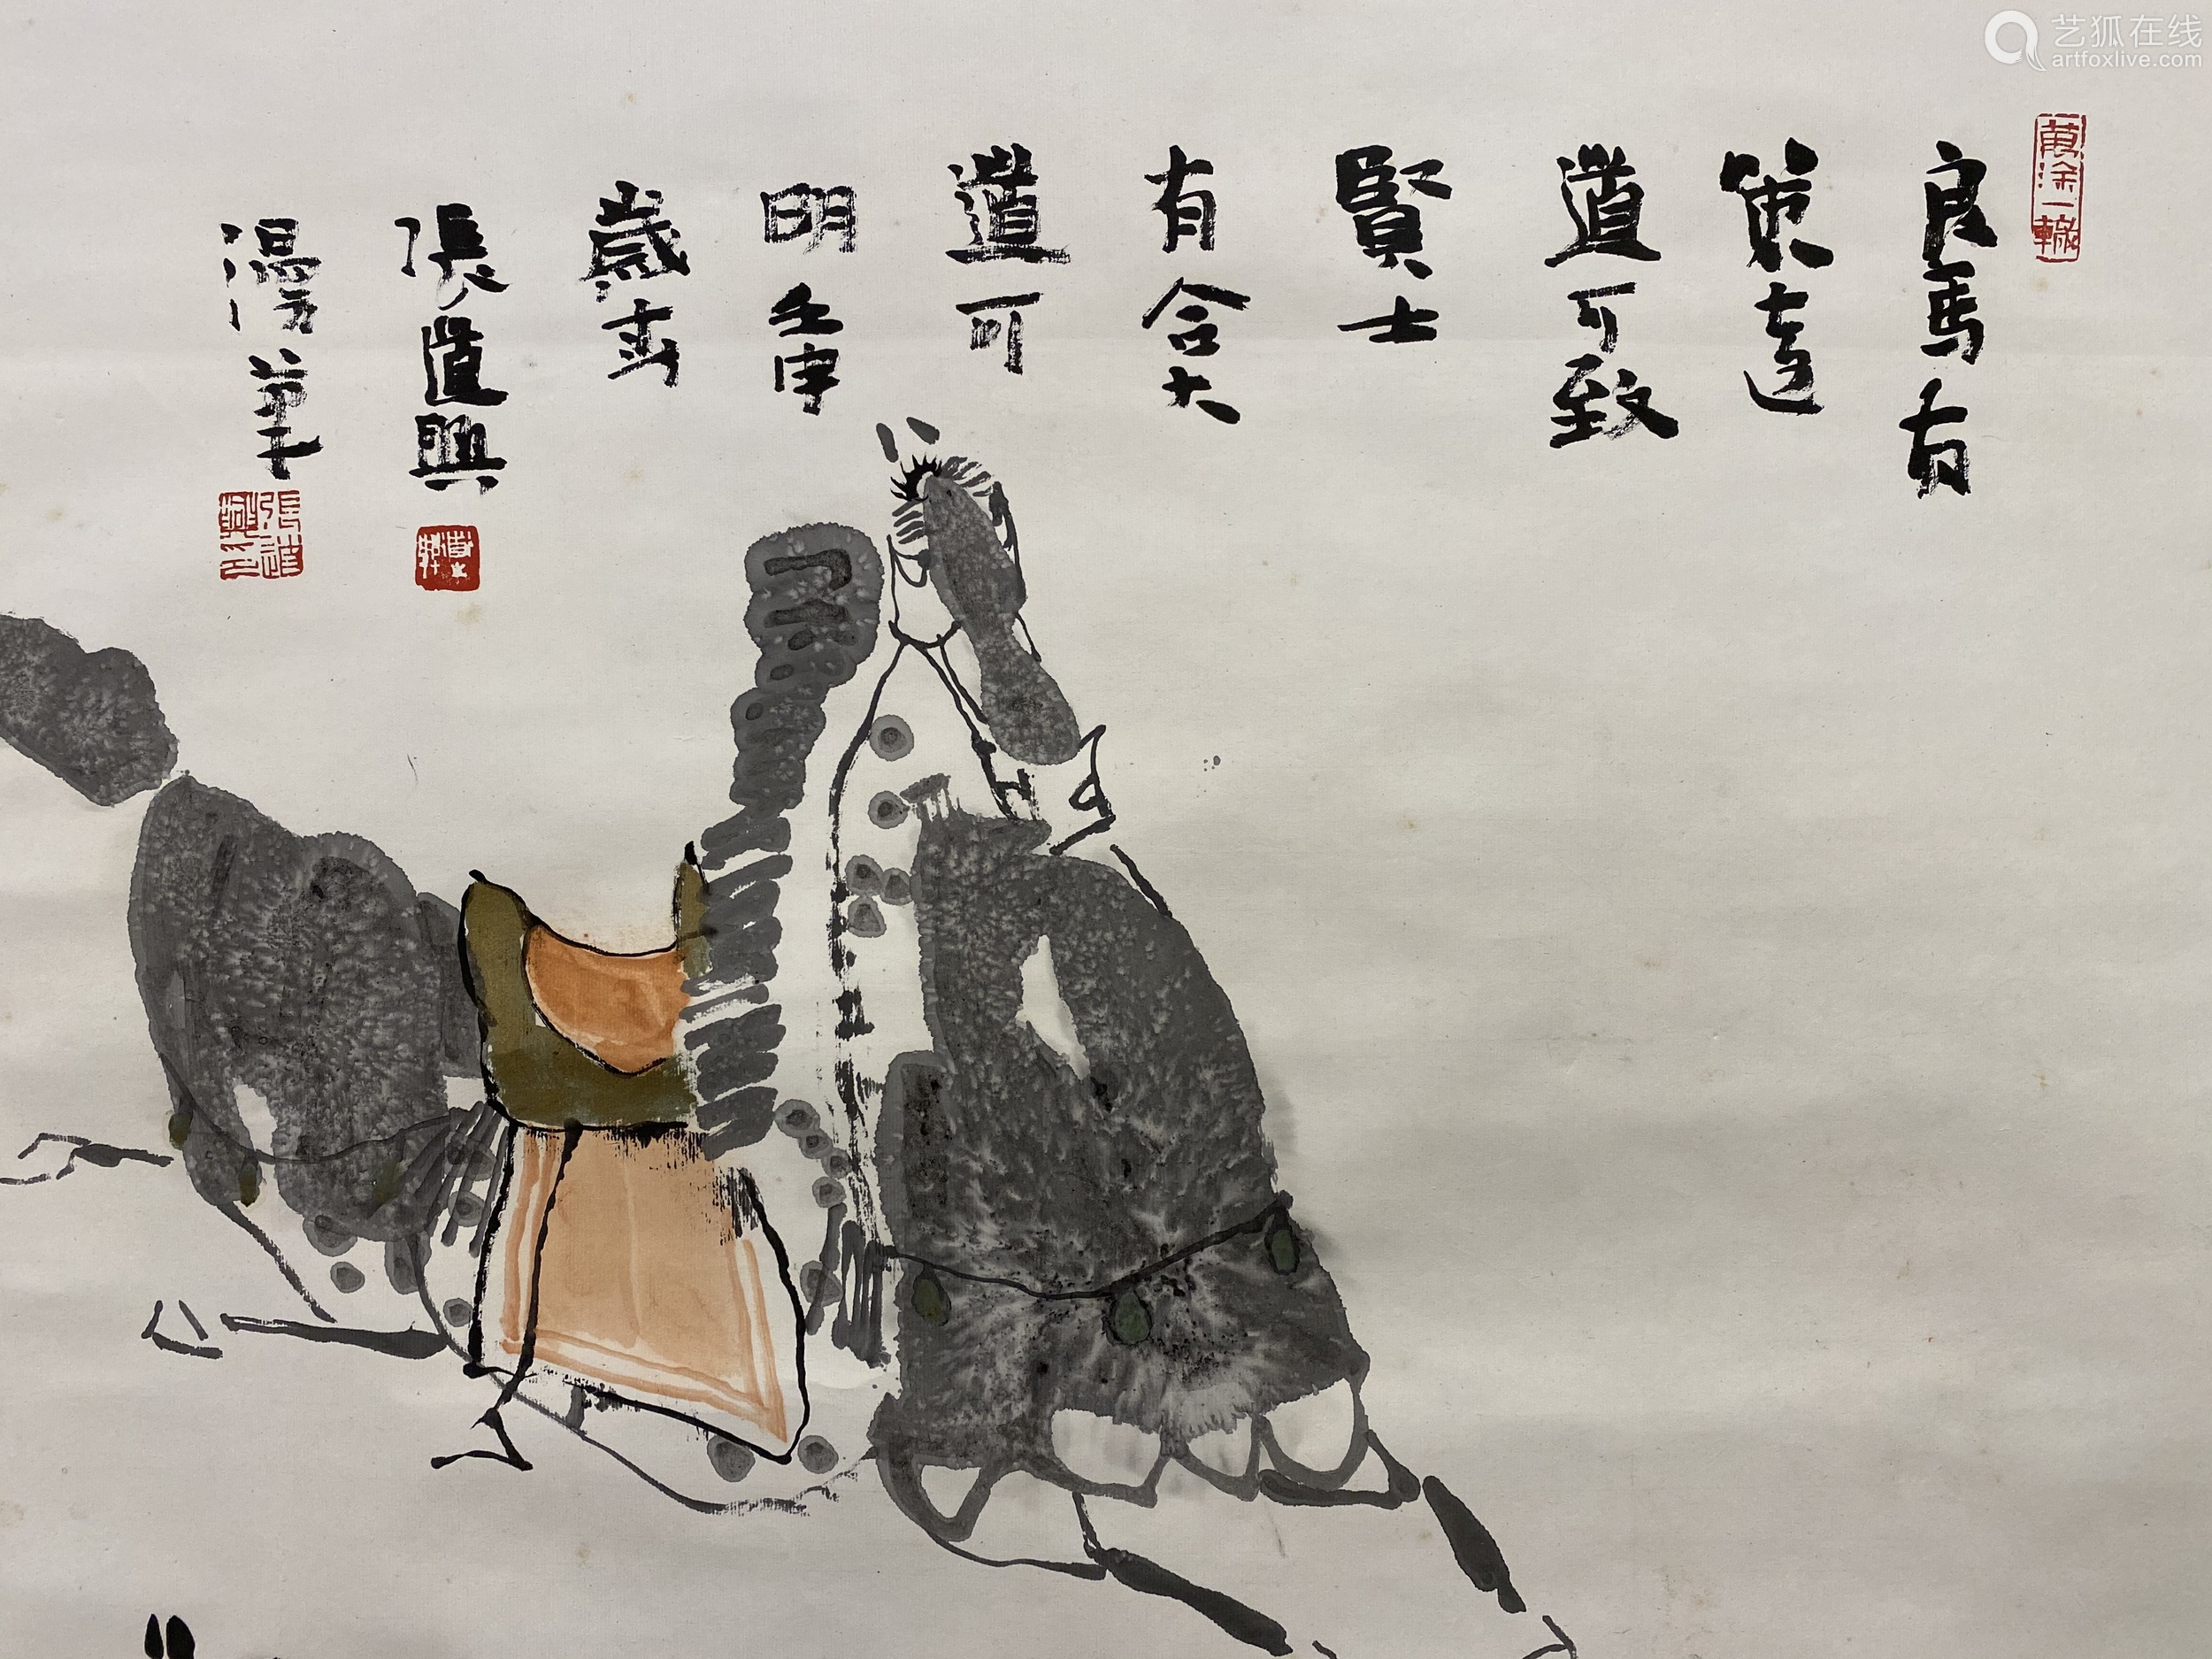 良馬有
策遠
道可致
賢士
有合大
道可
明壬申
歲春
張道興
漫筆
張道興印
萬塗一轍
艺狐在线
artfoxlive.com